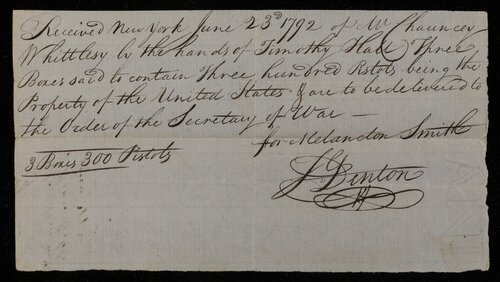 Received New York June 23d 1792 of Mr Chauncey
Whittlesy by the hands of Timothy Hall Three
Boxes said to contain Three hundred Pistols being the
Property of the United States & are to be delivered to
the Order of the Secretary of War —
for Melancton Smith
3 Boxes 300 Pistols
J Denton